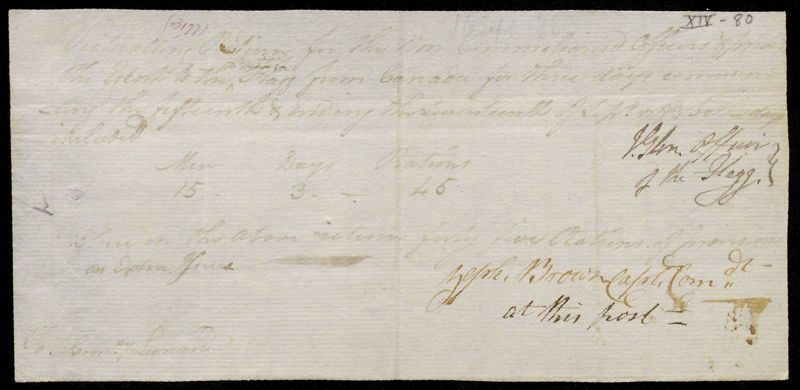 (3177)
XIV - 80
Victualing Return for the Non Commissioned Officers &
the Escort to the British Flagg from Canada for three days commen-
cing the fifteenth & ending the Seventeenth of Sept. both days
included
Men Days Rations
15 3 — 45
Officer
of the Flagg.
on the above return forty five Rations of provisions
as Extra Issue
Jseph. Brown Capt. Comdt
at this post
To Leonard